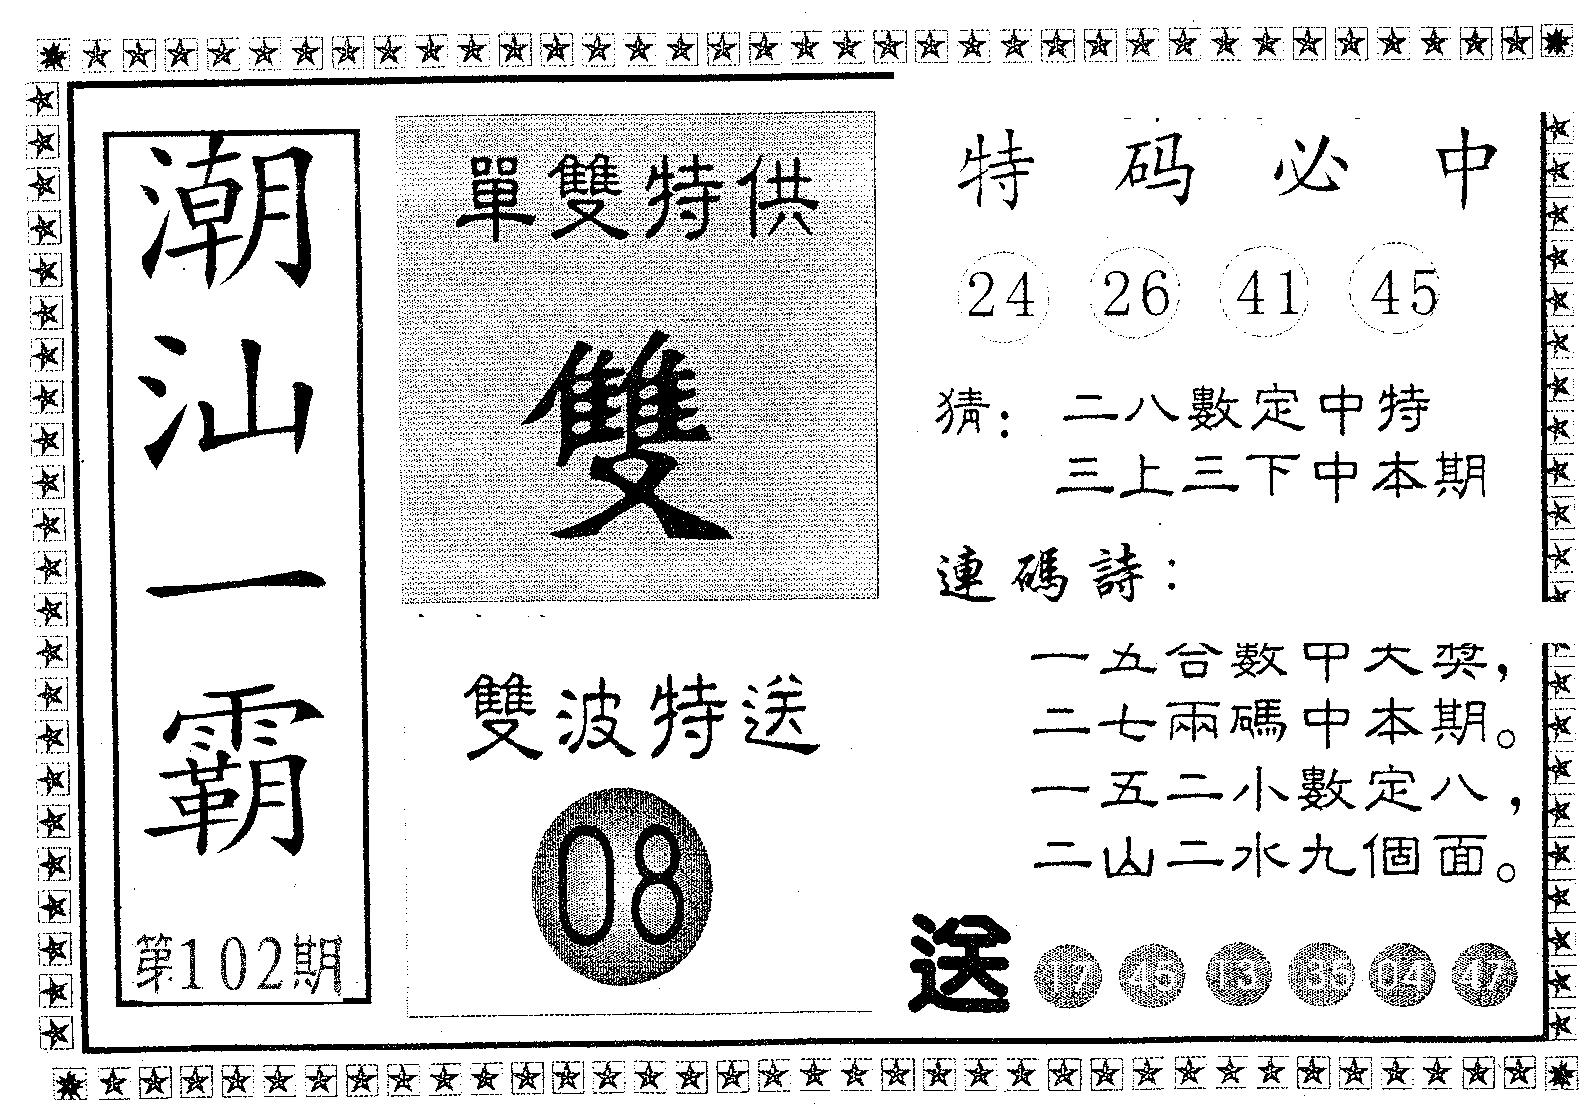 潮汕一霸
第102期
單雙特供
雙
雙波特送
08
特码必中
24 26 41 45
猜：二八數定中特
三上三下中本期
連碼詩：
一五合數中大獎，
二七兩碼中本期。
一五二小數定八，
二山二水九個面。
送 17 45 13 36 04 47